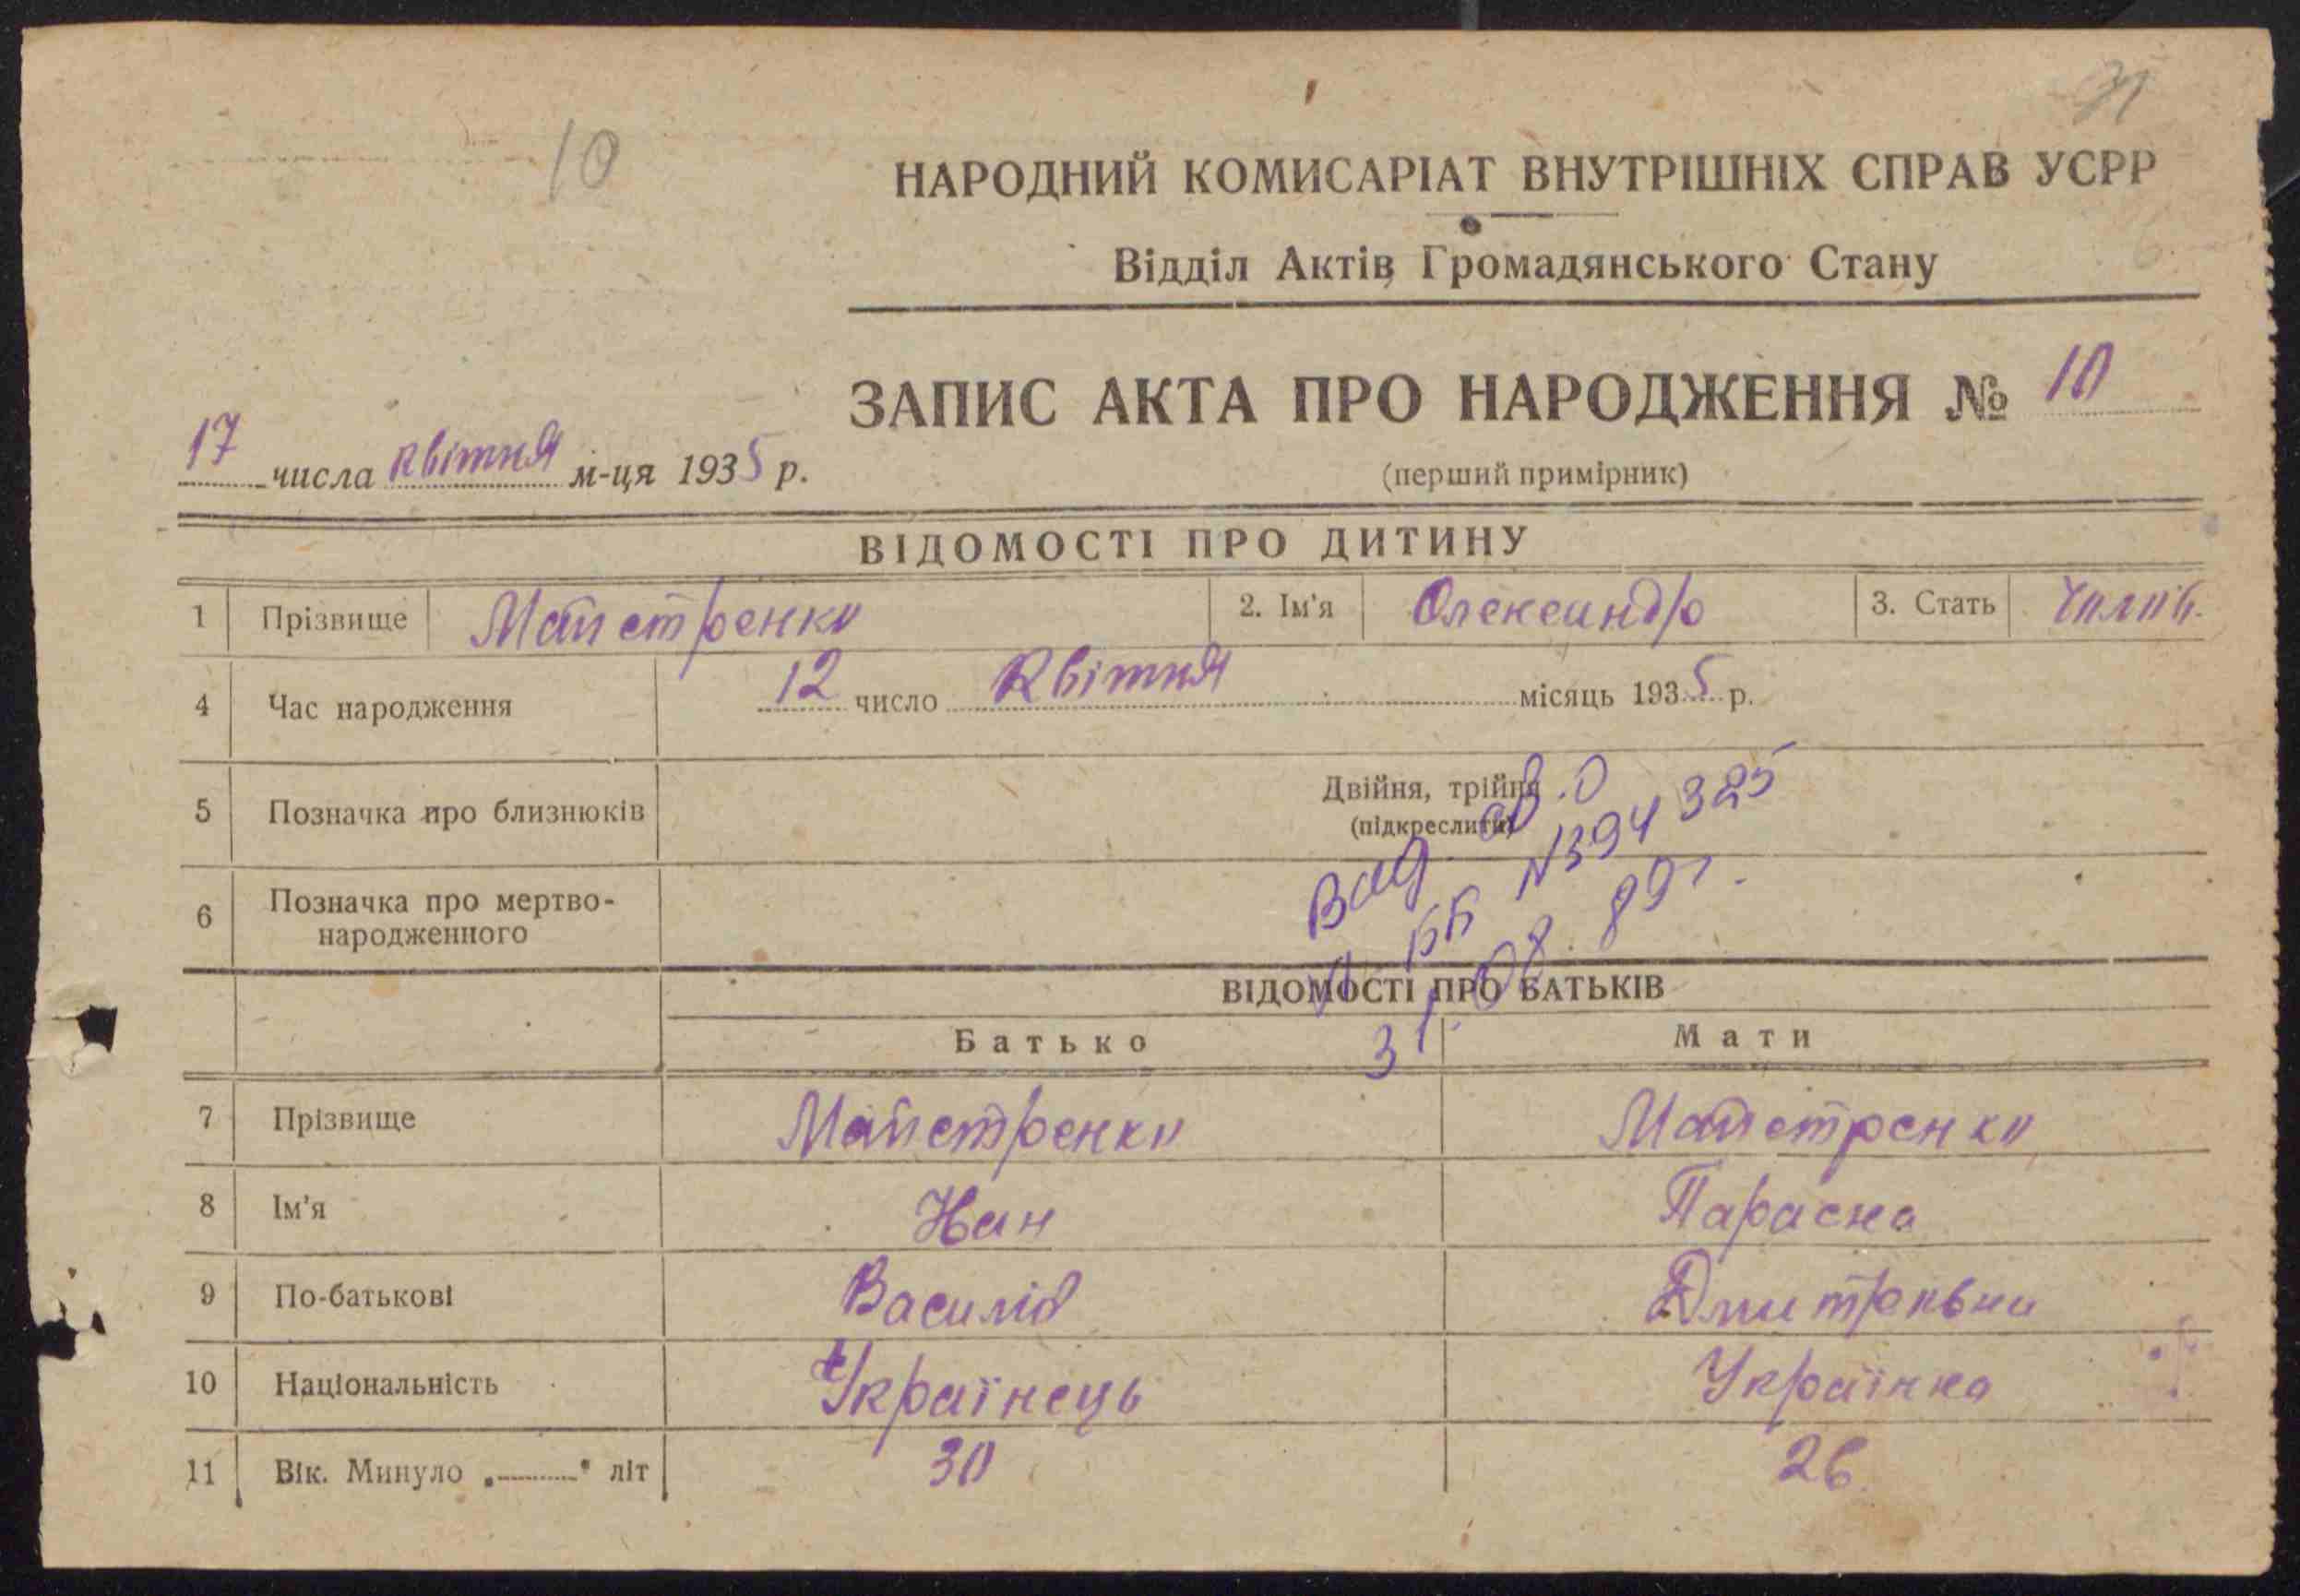 10
31
НАРОДНИЙ КОМИСАРІАТ ВНУТРІШНІХ СПРАВ УСРР
Відділ Актів Громадянського Стану
ЗАПИС АКТА ПРО НАРОДЖЕННЯ № 10
17 числа квітня м-ця 1935 р.
(перший примірник)
ВІДОМОСТІ ПРО ДИТИНУ
1 Прізвище Майстренко 2. Ім'я Олександр 3. Стать Чолов.
4 Час народження 12 число Квітня місяць 1935 р.
5 Позначка про близнюків Двійня, трійня
(підкреслити)
6 Позначка про мертво-
народженного
Вид. св.о
БК №394325
31.08.89г.
ВІДОМОСТІ ПРО БАТЬКІВ
Батько Мати
7 Прізвище Майстренко Майстренко
8 Ім'я Иван Параска
9 По-батькові Василів Дмитровна
10 Національність Українець Українка
11 Вік. Минуло „ " літ 30 26